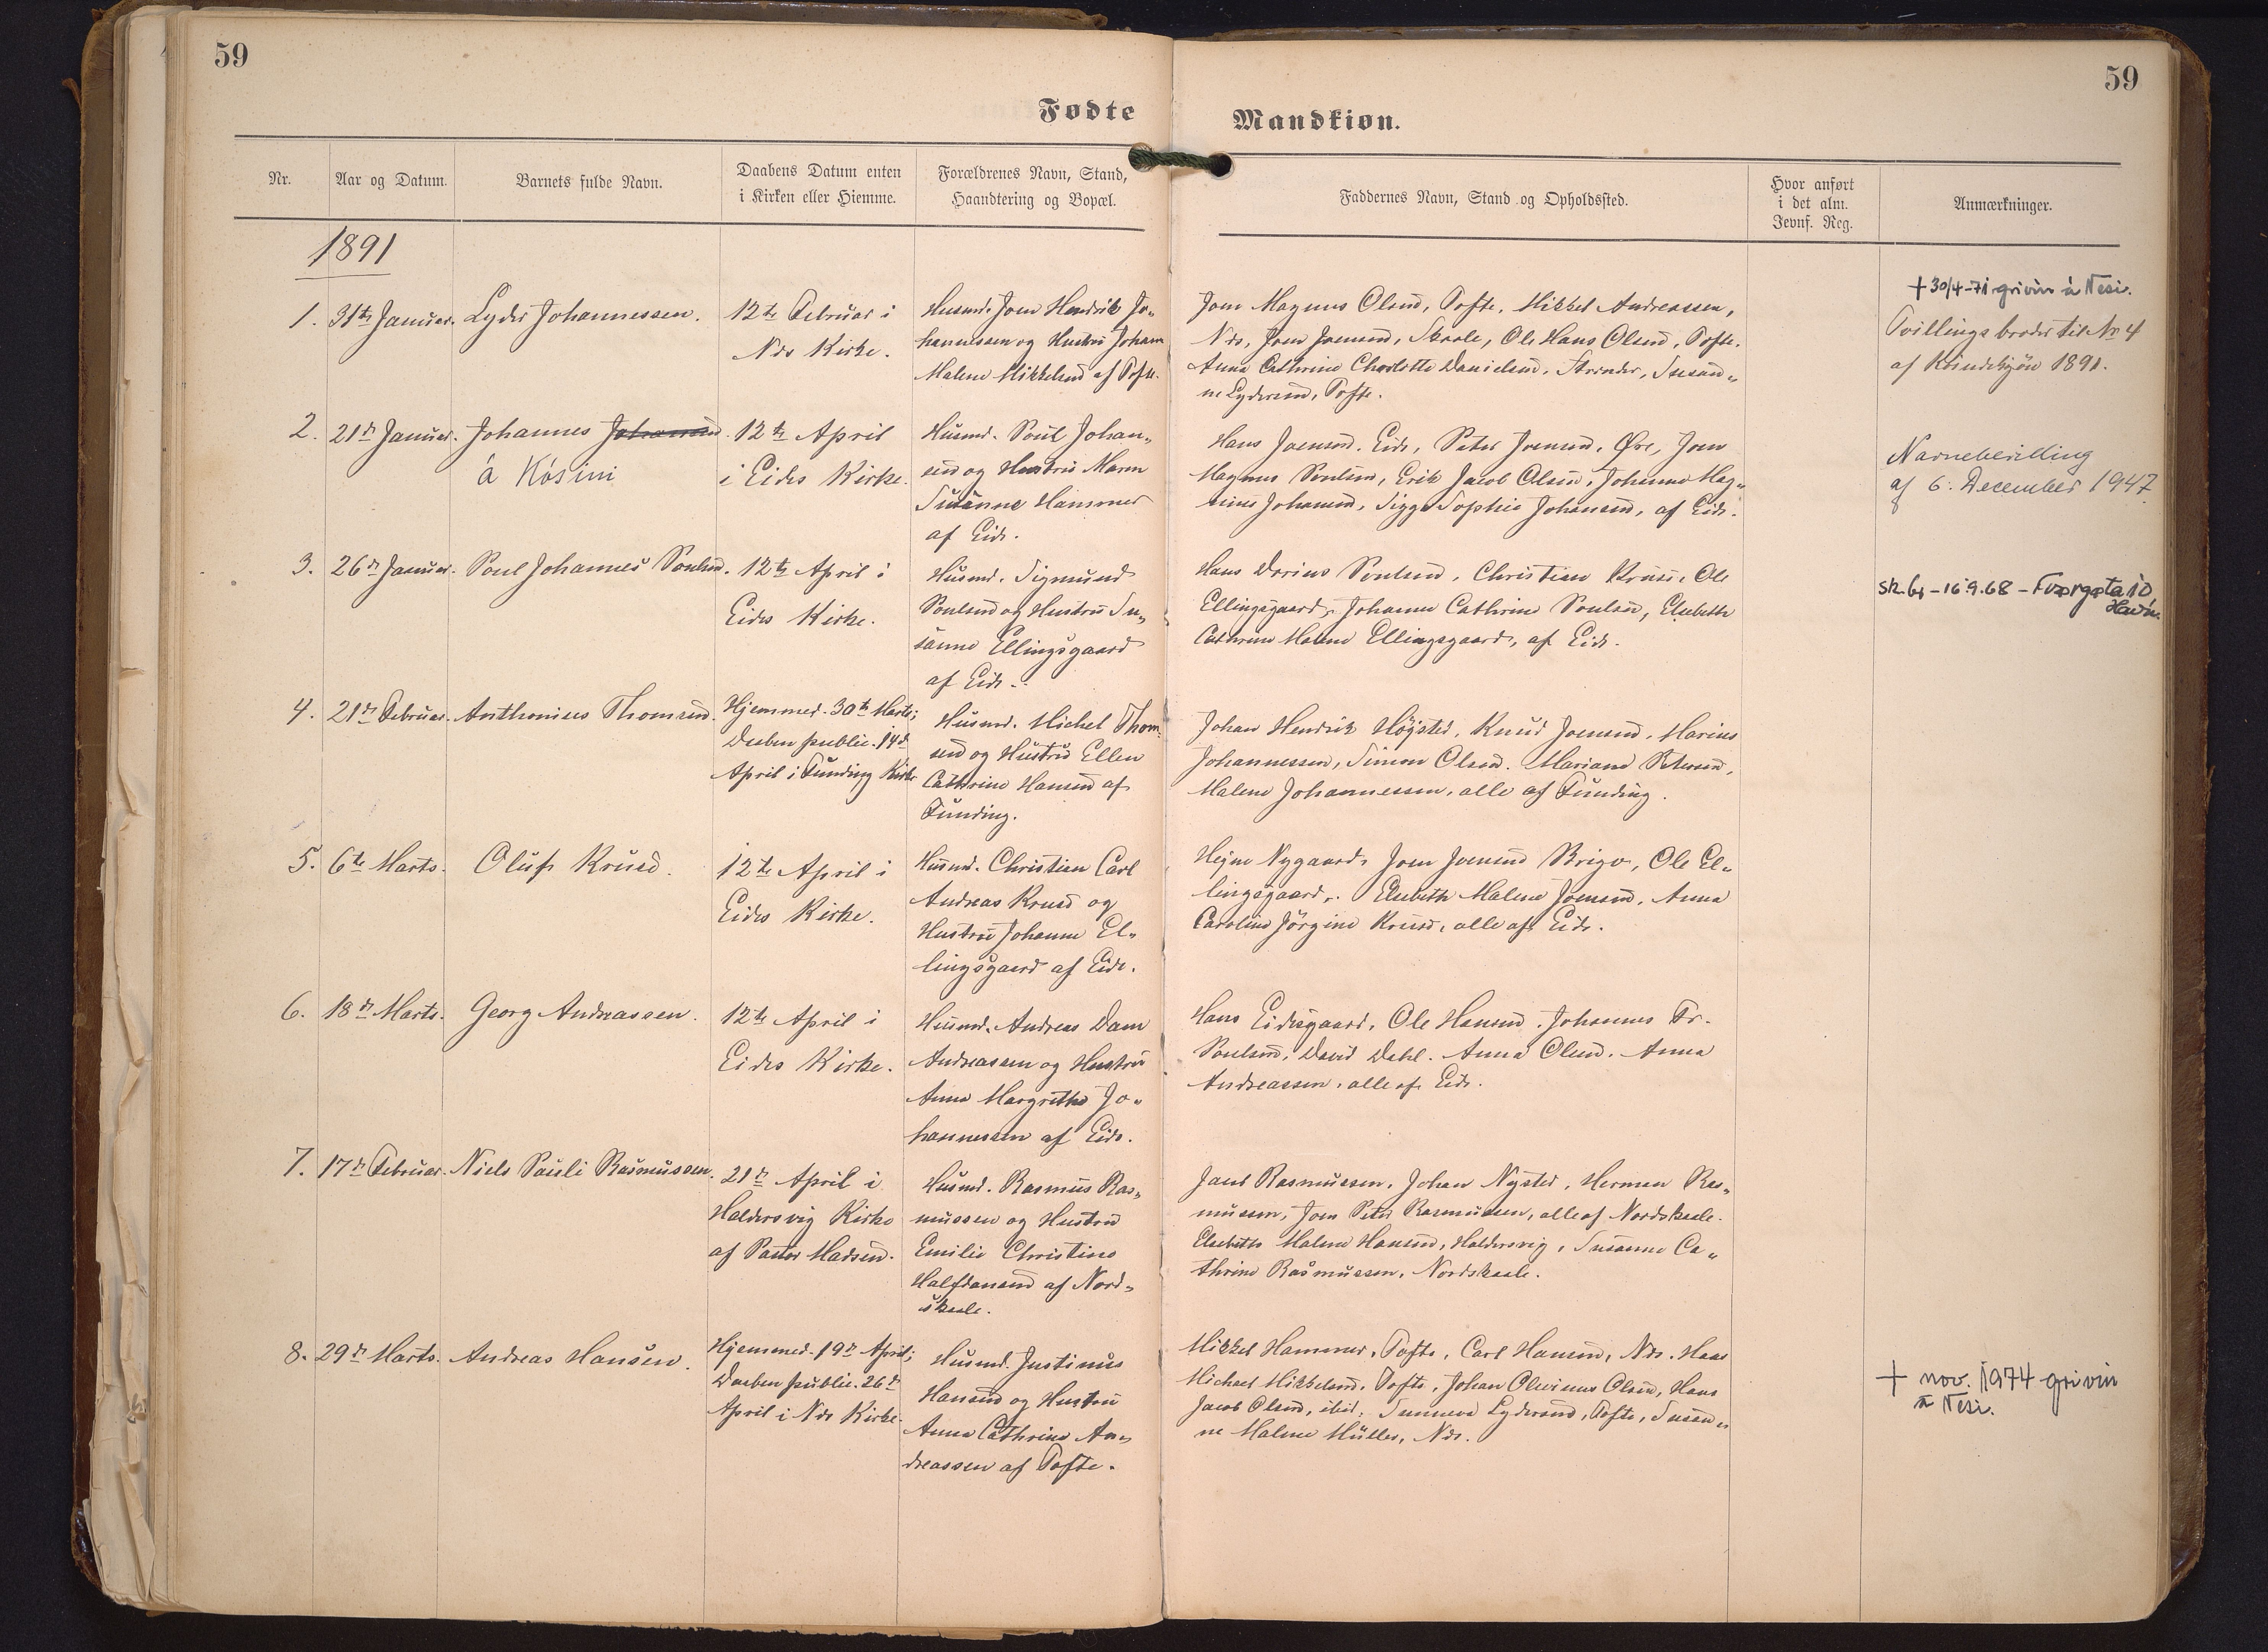 59
59
Fødte
Mandkiøn.
Nr.
Aar og Datum.
Barnets fulde Navn.
Daabens Datum enten
i Kirken eller Hiemme.
Forældrenes Navn, Stand,
Haandtering og Bopæl.
Faddernes Navn, Stand og Opholdssted.
Hvor anført
i det alm.
Jevnf. Reg.
Anmærkninger.
1891
1.
31te Januar.
Lyder Johannessen.
12te Februar i
Nds Kirke.
Husmd. Joen Hendrik Jo-
hannessen og Hustru Johanne
Malene Mikkelsen af Tofte.
Joen Magnus Olsen, Tofte, Mikkel Andreassen,
Nds, Joen Joensen, Skaale, Ole Hans Olsen, Tofte.
Anna Cathrine Charlotte Danielsen, Strender, Susan-
ne Lydersen, Tofte.
+ 30/4-71 grivin á Nesi.
Tvillingebroder til No 4
af Kvindekjøn 1891.
2.
21de Januar.
Johannes Johansen
á Kósini
12te April
i Eides Kirke.
Husmd. Poul Johan-
sen og Hustru Maren
Susanne Hammer
af Eide.
Hans Joensen, Eide, Peter Joensen, Øre, Joen
Magnus Poulsen, Erik Jacob Olsen, Johanne Mag-
nine Johansen, Sigga Sophie Johansen, af Eide.
Navnebevilling
af 6. December 1947
3.
26de Januar.
Poul Johannes Poulsen.
12te April i
Eides Kirke.
Husmd. Sigmund
Poulsen og Hustru Su-
sanne Ellingsgaard
af Eide.
Hans Darius Poulsen, Christian Kruse, Ole
Ellingsgaard, Johanne Cathrine Poulsen, Elsebeth
Cathrine Malene Ellingsgaard, af Eide.
- 16.9.68 -
4.
21de Februar.
Anthonius Thomsen.
Hjemmed. 30te Marts;
Daaben public. 14de
April i Funding Kirke
Husmd. Michel Thom-
sen og Hustru Ellen
Cathrine Hansen af
Funding.
Johan Hendrik Højsted, Knud Joensen, Marius
Johannessen, Simon Olsen, Mariane Petersen,
Malene Johannessen, alle af Funding.
5.
6te Marts.
Oluf Kruse.
12te April i
Eides Kirke.
Husmd. Christian Carl
Andreas Kruse og
Hustru Johanne El-
lingsgaard af Eide.
Hejne Nygaard, Joen Joensen Brigv, Ole El-
lingsgaard, Elsebeth Malene Joensen, Anna
Caroline Jörgine Kruse, alle af Eide.
6.
18de Marts.
Georg Andreassen.
12te April i
Eides Kirke.
Husmd. Andreas Dam
Andreassen og Hustru
Anna Margrethe Jo-
hannessen af Eide.
Hans Eidesgaard, Ole Hansen, Johannes Fr.
Poulsen, David Dahl, Anna Olsen, Anna
Andreassen, alle af Eide.
7.
17de Februar.
Niels Pauli Rasmussen.
21de April i
Haldersvig Kirke
af Pastor Madsen.
Husmd. Rasmus Ras-
mussen og Hustru
Emilie Christine
Halfdansen af Nord-
skaale.
Jacob Rasmussen, Johan Nysted, Herman Ras-
mussen, Joen Peter Rasmussen, alle af Nordskaale.
Elsebeth Malene Hansen, Haldersvig, Susanne Ca-
thrine Rasmussen, Nordskaale.
8.
29de Marts.
Andreas Hansen.
Hjemmed. 19de April;
Daaben public. 26de
April i Nds Kirke.
Husmd. Justinus
Hansen og Hustru
Anna Cathrine An-
dreassen af Tofte.
Mikkel Hammer, Tofte, Carl Hansen, Nds, Hans
Michael Mikkelsen, Tofte, Johan Olevinus Olsen, Hans
Jacob Olsen, ibid; Sunneva Lydersen, Tofte, Susan-
ne Malene Müller, Nds.
+ nov. 1974 grivin
á Nesi.